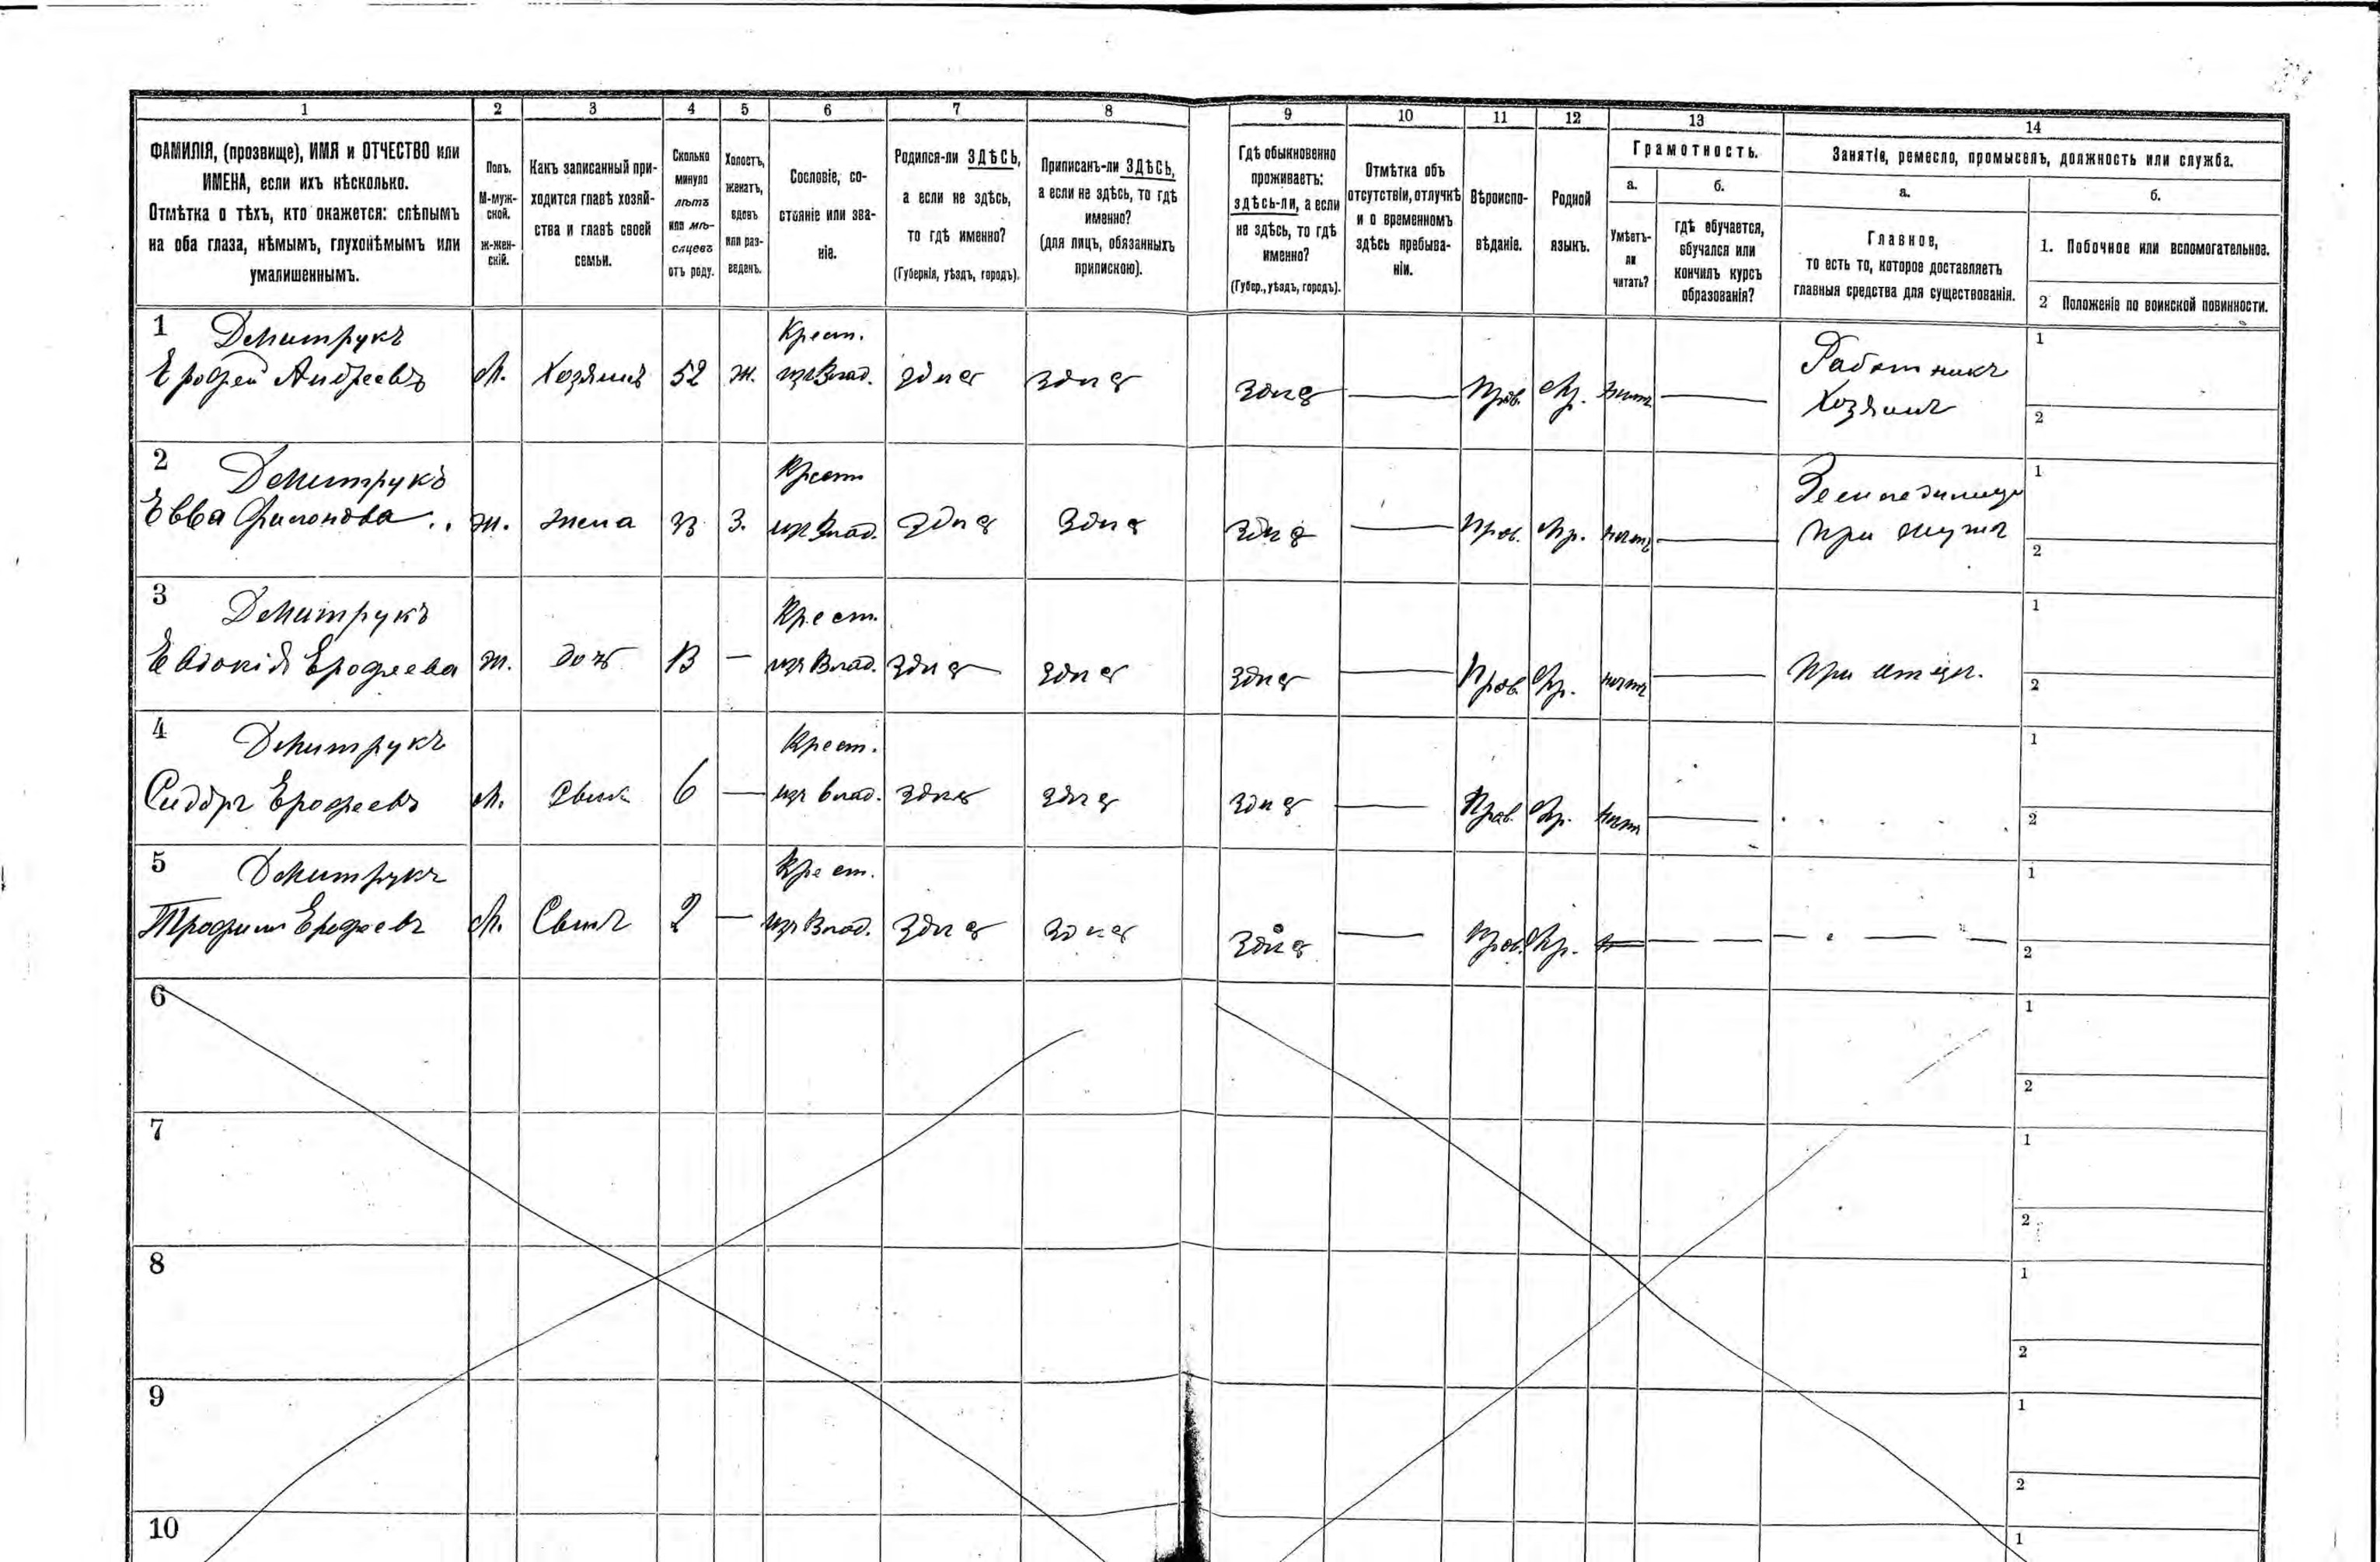 1 2 3 4 5 6 7 8 9 10 11 12 13 14
ФАМИЛІЯ, (прозвище), ИМЯ и ОТЧЕСТВО или
ИМЕНА, если ихъ нѣсколько.
Отмѣтка о тѣхъ, кто окажется: слѣпымъ
на оба глаза, нѣмымъ, глухонѣмымъ или
умалишеннымъ.
Полъ.
М-муж-
ской.
ж-жен-
скій.
Какъ записанный при-
ходится главѣ хозяй-
ства и главѣ своей
семьи.
Сколько
минуло
лѣтъ
или мѣ-
сяцевъ
отъ роду.
Холостъ,
женатъ,
вдовъ
или раз-
веденъ.
Сословіе, со-
стояніе или зва-
ніе.
Родился-ли ЗДѢСЬ,
а если не здѣсь,
то гдѣ именно?
(Губернія, уѣздъ, городъ).
Приписанъ-ли ЗДѢСЬ,
а если не здѣсь, то гдѣ
именно?
(для лицъ, обязанныхъ
припискою).
Гдѣ обыкновенно
проживаетъ:
здѣсь-ли, а если
не здѣсь, то гдѣ
именно?
(Губер., уѣздъ, городъ).
Отмѣтка объ
отсутствіи, отлучкѣ
и о временномъ
здѣсь пребыва-
ніи.
Вѣроиспо-
вѣданіе.
Родной
языкъ.
Грамотность.
а.
Умѣетъ-
ли
читать?
б.
гдѣ обучается,
обучался или
кончилъ курсъ
образованія?
Занятіе, ремесло, промыселъ, должность или служба.
а.
Главное,
то есть то, которое доставляетъ
главныя средства для существованія.
б.
1. Побочное или вспомогательное.
2 Положеніе по воинской повинности.
1 Демитрукъ Крест. Работникъ 1
Ерофей Андреевъ М. Хозяинъ 52 ж. изъ Влад. здѣсь здѣсь здѣсь — Прав. Мр. нѣтъ — Хозяинъ 2
2 Демитрукъ Крест 1
Евва Филонова ж. жена 33 З. изъ Влад. здѣсь здѣсь здѣсь — Прав. Мр. нѣтъ — при мужѣ 2
3 Демитрукъ Крест. 1
Евдокія Ерофеева ж. дочь 13 — изъ Влад. здѣсь здѣсь здѣсь — Прав Мр. нѣтъ — При отцѣ. 2
4 Демитрукъ Крест. 1
Сидоръ Ерофеевъ М. Сынъ 6 — изъ Влад. здѣсь здѣсь здѣсь — Прав. Мр. нѣтъ — 2
5 Демитрукъ Крест. 1
Трофимъ Ерофеевъ М. Сынъ 2 — изъ Влад. здѣсь здѣсь здѣсь — Прав. Мр. — — — — 2
6 1
2
7 1
2
8 1
2
9 1
2
10 1